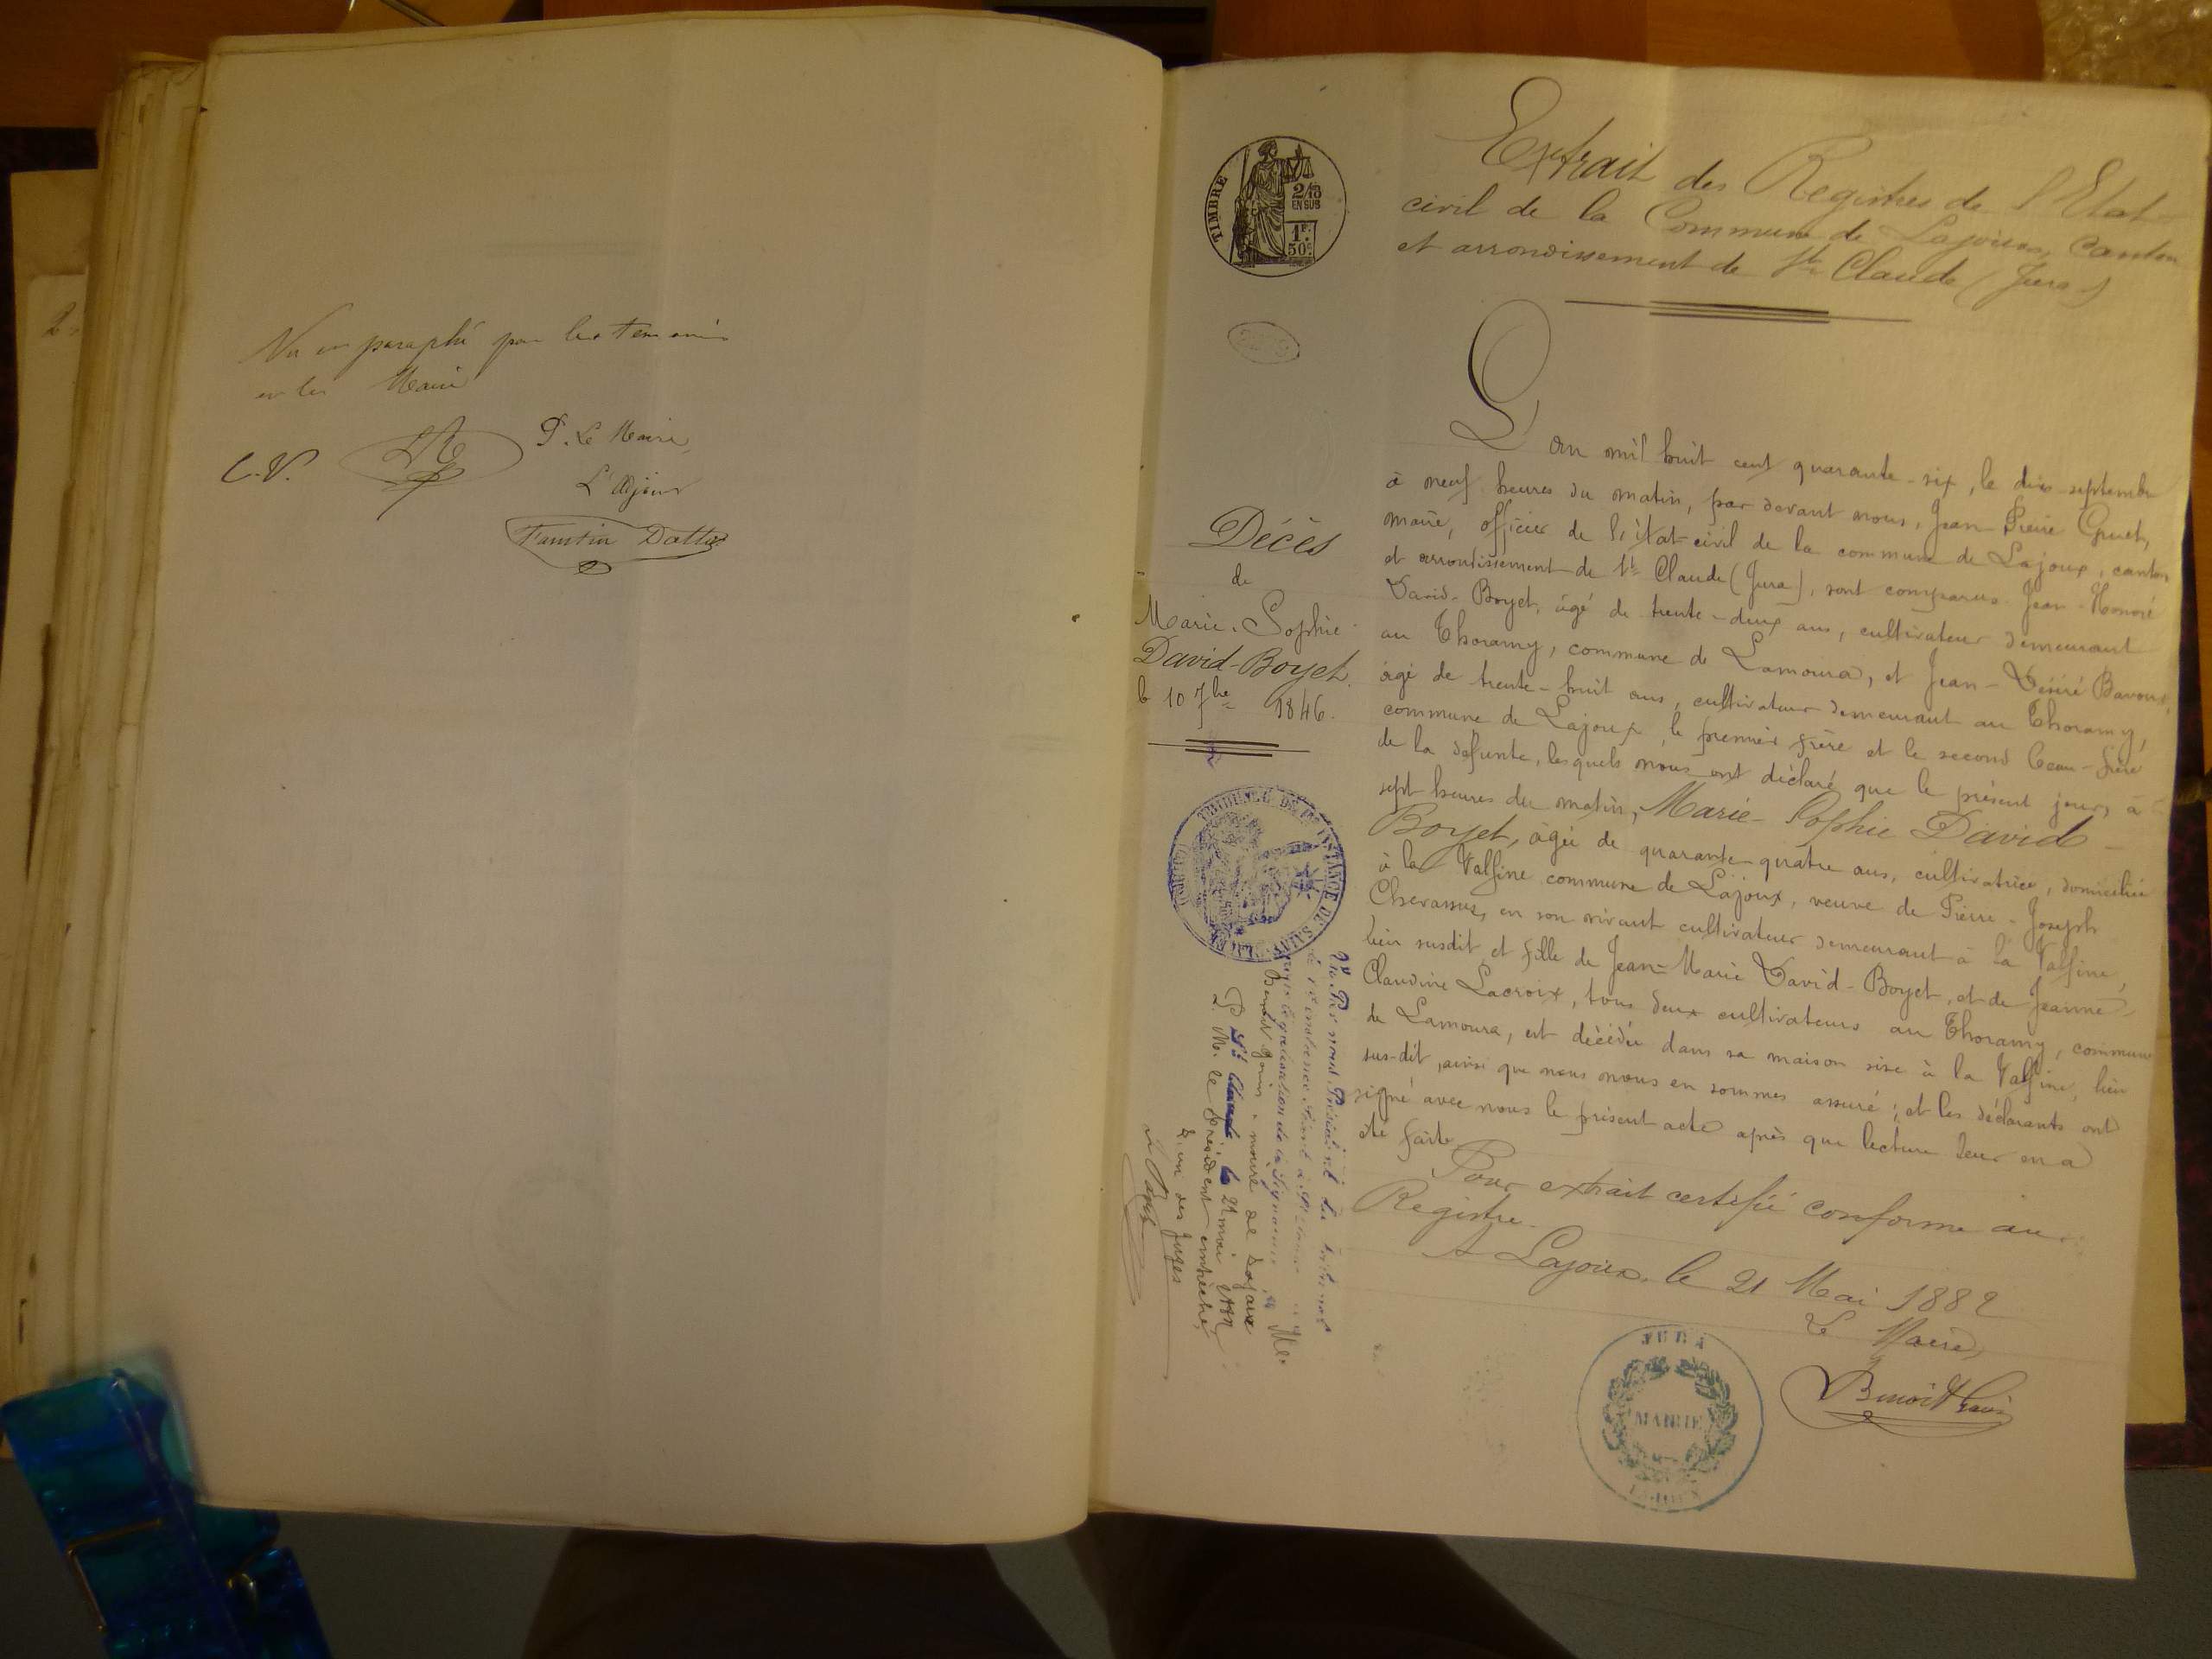 Vu et paraphé par les temoins
et les Maire
C.V.
P. Le Maire,
L'Adjoint
TIMBRE
2/10
EN SUS
1F.
50c.
Extrait des Registres de l'Etat
civil de la Commune de Lajoux, Canton
et arrondissement de St Claude (Jura)
Décès
de
Marie-Sophie
David-Boyet.
le 10 7bre 1846.
L'an mil huit cent quarante-six, le dix septembre
à neuf heures du matin, par devant nous, Jean-Pierre Gruet,
maire, officier de l'état-civil de la commune de Lajoux, canton
et arrondissement de St Claude (Jura), sont comparus Jean-Honoré
David-Boyet, âgé de trente-deux ans, cultivateur demeurant
au Thoramy, commune de Lamoura, et Jean-Désiré Bavoux,
âgé de trente-huit ans, cultivateur demeurant au Thoramy,
commune de Lajoux, le premier frère et le second beau-frère
de la défunte, lesquels nous ont déclaré que le présent jour, à
sept heures du matin, Marie-Sophie David-
Boyet, âgée de quarante-quatre ans, cultivatrice, domiciliée
à la Valfine commune de Lajoux, veuve de Pierre-Joseph
Chevassus, en son vivant cultivateur demeurant à la Valfine,
lieu susdit et fille de Jean-Marie David-Boyet, et de Jeanne-
Claudine Lacroix, tous deux cultivateurs au Thoramy, commune
de Lamoura, est décédée dans sa maison sise à la Valfine, lieu
sus-dit, ainsi que nous nous en sommes assuré; et les déclarants ont
signé avec nous le présent acte après que lecture leur en a
été faite.
Pour extrait certifié conforme au
Registre.
A Lajoux, le 21 Mai 1882
Le Maire,
JURA
MAIRIE
LAJOUX
TRIBUNAL DE 1re INSTANCE DE SAINT-CLAUDE
Vu Par nous Président du tribunal
de 1re instance séant à St Claude
pour légalisation de la signature de Mr
Benoit Gonin, maire de Lajoux
St Claude le 21 mai 1882
P. M. le Président empêché,
L'un des Juges